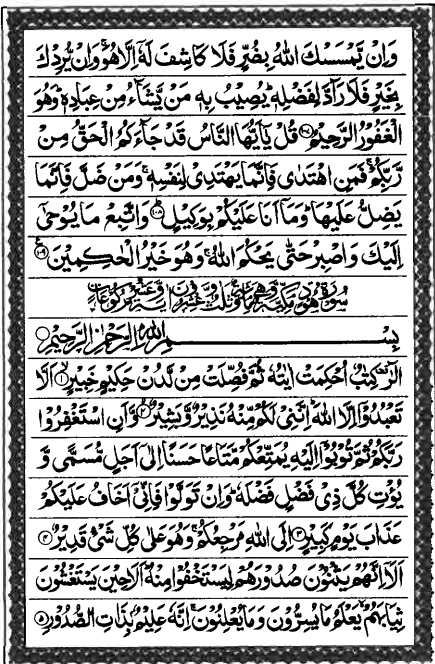 وَاِنْ يَّمْسَسْكَ اللّٰهُ بِضُرٍّ فَلَا كَاشِفَ لَهٗۤ اِلَّا هُوَ ۚ وَاِنْ يُّرِدْكَ
بِخَيْرٍ فَلَا رَآدَّ لِفَضْلِهٖ ؕ يُصِيْبُ بِهٖ مَنْ يَّشَآءُ مِنْ عِبَادِهٖ ؕ وَهُوَ
الْغَفُوْرُ الرَّحِيْمُ ﴿۱۰۷﴾ قُلْ يٰۤاَيُّهَا النَّاسُ قَدْ جَآءَكُمُ الْحَقُّ مِنْ
رَّبِّكُمْ ۚ فَمَنِ اهْتَدٰى فَاِنَّمَا يَهْتَدِىْ لِنَفْسِهٖ ۚ وَمَنْ ضَلَّ فَاِنَّمَا
يَضِلُّ عَلَيْهَا ۚ وَمَاۤ اَنَا عَلَيْكُمْ بِوَكِيْلٍ ﴿۱۰۸﴾ وَاتَّبِعْ مَا يُوْحٰۤى
اِلَيْكَ وَاصْبِرْ حَتّٰى يَحْكُمَ اللّٰهُ ۚ وَهُوَ خَيْرُ الْحٰكِمِيْنَ ﴿۱۰۹﴾
سُوْرَةُ هُوْدٍ مَكِّيَّةٌ وَّهِىَ مِائَةٌ وَّثَلٰثٌ وَّعِشْرُوْنَ اٰيَةً وَّعَشْرُ رُكُوْعَاتٍ
بِسْمِ اللّٰهِ الرَّحْمٰنِ الرَّحِيْمِ
الٓرٰ ۟ كِتٰبٌ اُحْكِمَتْ اٰيٰتُهٗ ثُمَّ فُصِّلَتْ مِنْ لَّدُنْ حَكِيْمٍ خَبِيْرٍ ﴿۱﴾ اَلَّا
تَعْبُدُوْۤا اِلَّا اللّٰهَ ؕ اِنَّنِىْ لَكُمْ مِّنْهُ نَذِيْرٌ وَّبَشِيْرٌ ﴿۲﴾ وَّاَنِ اسْتَغْفِرُوْا
رَبَّكُمْ ثُمَّ تُوْبُوْۤا اِلَيْهِ يُمَتِّعْكُمْ مَّتَاعًا حَسَنًا اِلٰۤى اَجَلٍ مُّسَمًّى وَّ
يُؤْتِ كُلَّ ذِىْ فَضْلٍ فَضْلَهٗ ؕ وَاِنْ تَوَلَّوْا فَاِنِّىْۤ اَخَافُ عَلَيْكُمْ
عَذَابَ يَوْمٍ كَبِيْرٍ ﴿۳﴾ اِلَى اللّٰهِ مَرْجِعُكُمْ ۚ وَهُوَ عَلٰى كُلِّ شَىْءٍ قَدِيْرٌ ﴿۴﴾
اَلَاۤ اِنَّهُمْ يَثْنُوْنَ صُدُوْرَهُمْ لِيَسْتَخْفُوْا مِنْهُ ؕ اَلَا حِيْنَ يَسْتَغْشُوْنَ
ثِيَابَهُمْ ۙ يَعْلَمُ مَا يُسِرُّوْنَ وَمَا يُعْلِنُوْنَ ۚ اِنَّهٗ عَلِيْمٌۢ بِذَاتِ الصُّدُوْرِ ﴿۵﴾